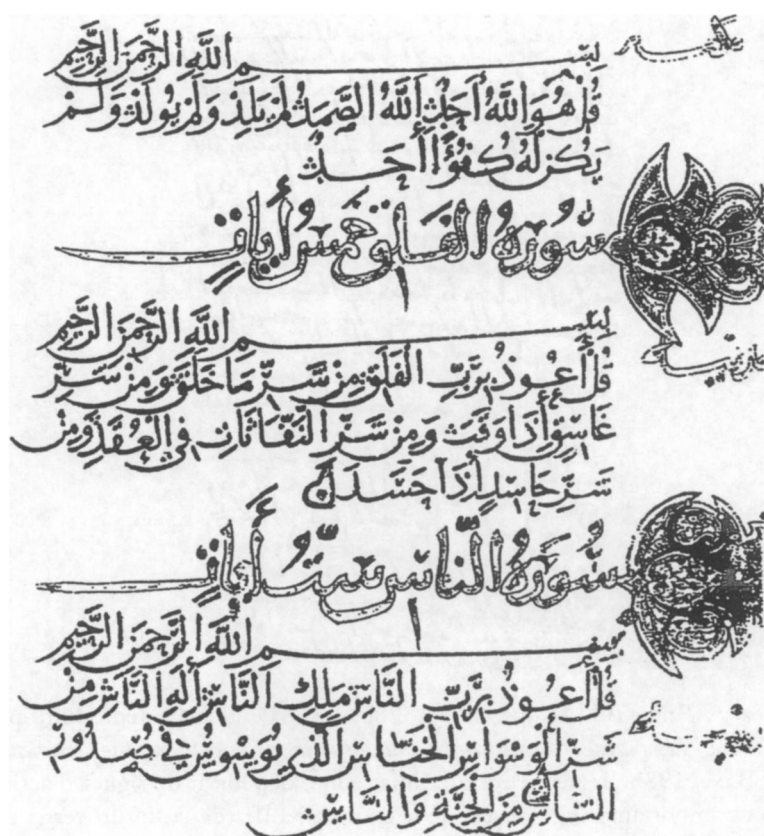 بسم الله الرحمن الرحيم
قُلْ هُوَ اللَّهُ أَحَدٌ اللَّهُ الصَّمَدُ لَمْ يَلِدْ وَلَمْ يُولَدْ وَلَمْ
يَكُنْ لَهُ كُفُوًا أَحَدٌ
سُورَةُ الْفَلَقِ خَمْسُ أَيَاتٍ
بسم الله الرحمن الرحيم
قُلْ أَعُوذُ بِرَبِّ الْفَلَقِ مِنْ شَرِّ مَا خَلَقَ وَمِنْ شَرِّ
غَاسِقٍ إِذَا وَقَبَ وَمِنْ شَرِّ النَّفَّاثَاتِ فِي الْعُقَدِ وَمِنْ
شَرِّ حَاسِدٍ إِذَا حَسَدَ
سُورَةُ النَّاسِ سِتُّ أَيَاتٍ
بسم الله الرحمن الرحيم
قُلْ أَعُوذُ بِرَبِّ النَّاسِ مَلِكِ النَّاسِ إِلَهِ النَّاسِ مِنْ
شَرِّ الْوَسْوَاسِ الْخَنَّاسِ الَّذِي يُوَسْوِسُ فِي صُدُورِ
النَّاسِ مِنَ الْجِنَّةِ وَالنَّاسِ